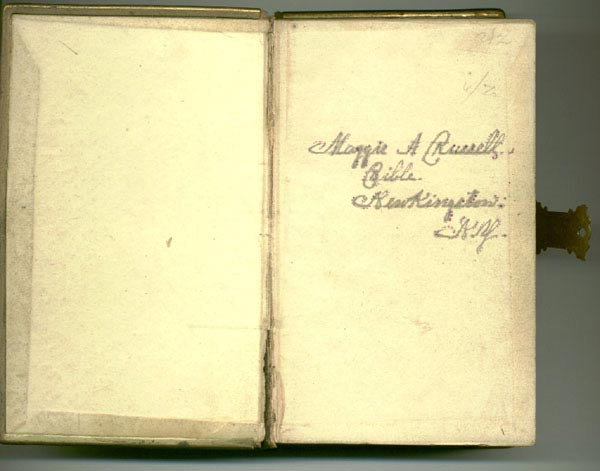 Maggie A Russell.
Bible.
New Kingston.
N.Y.